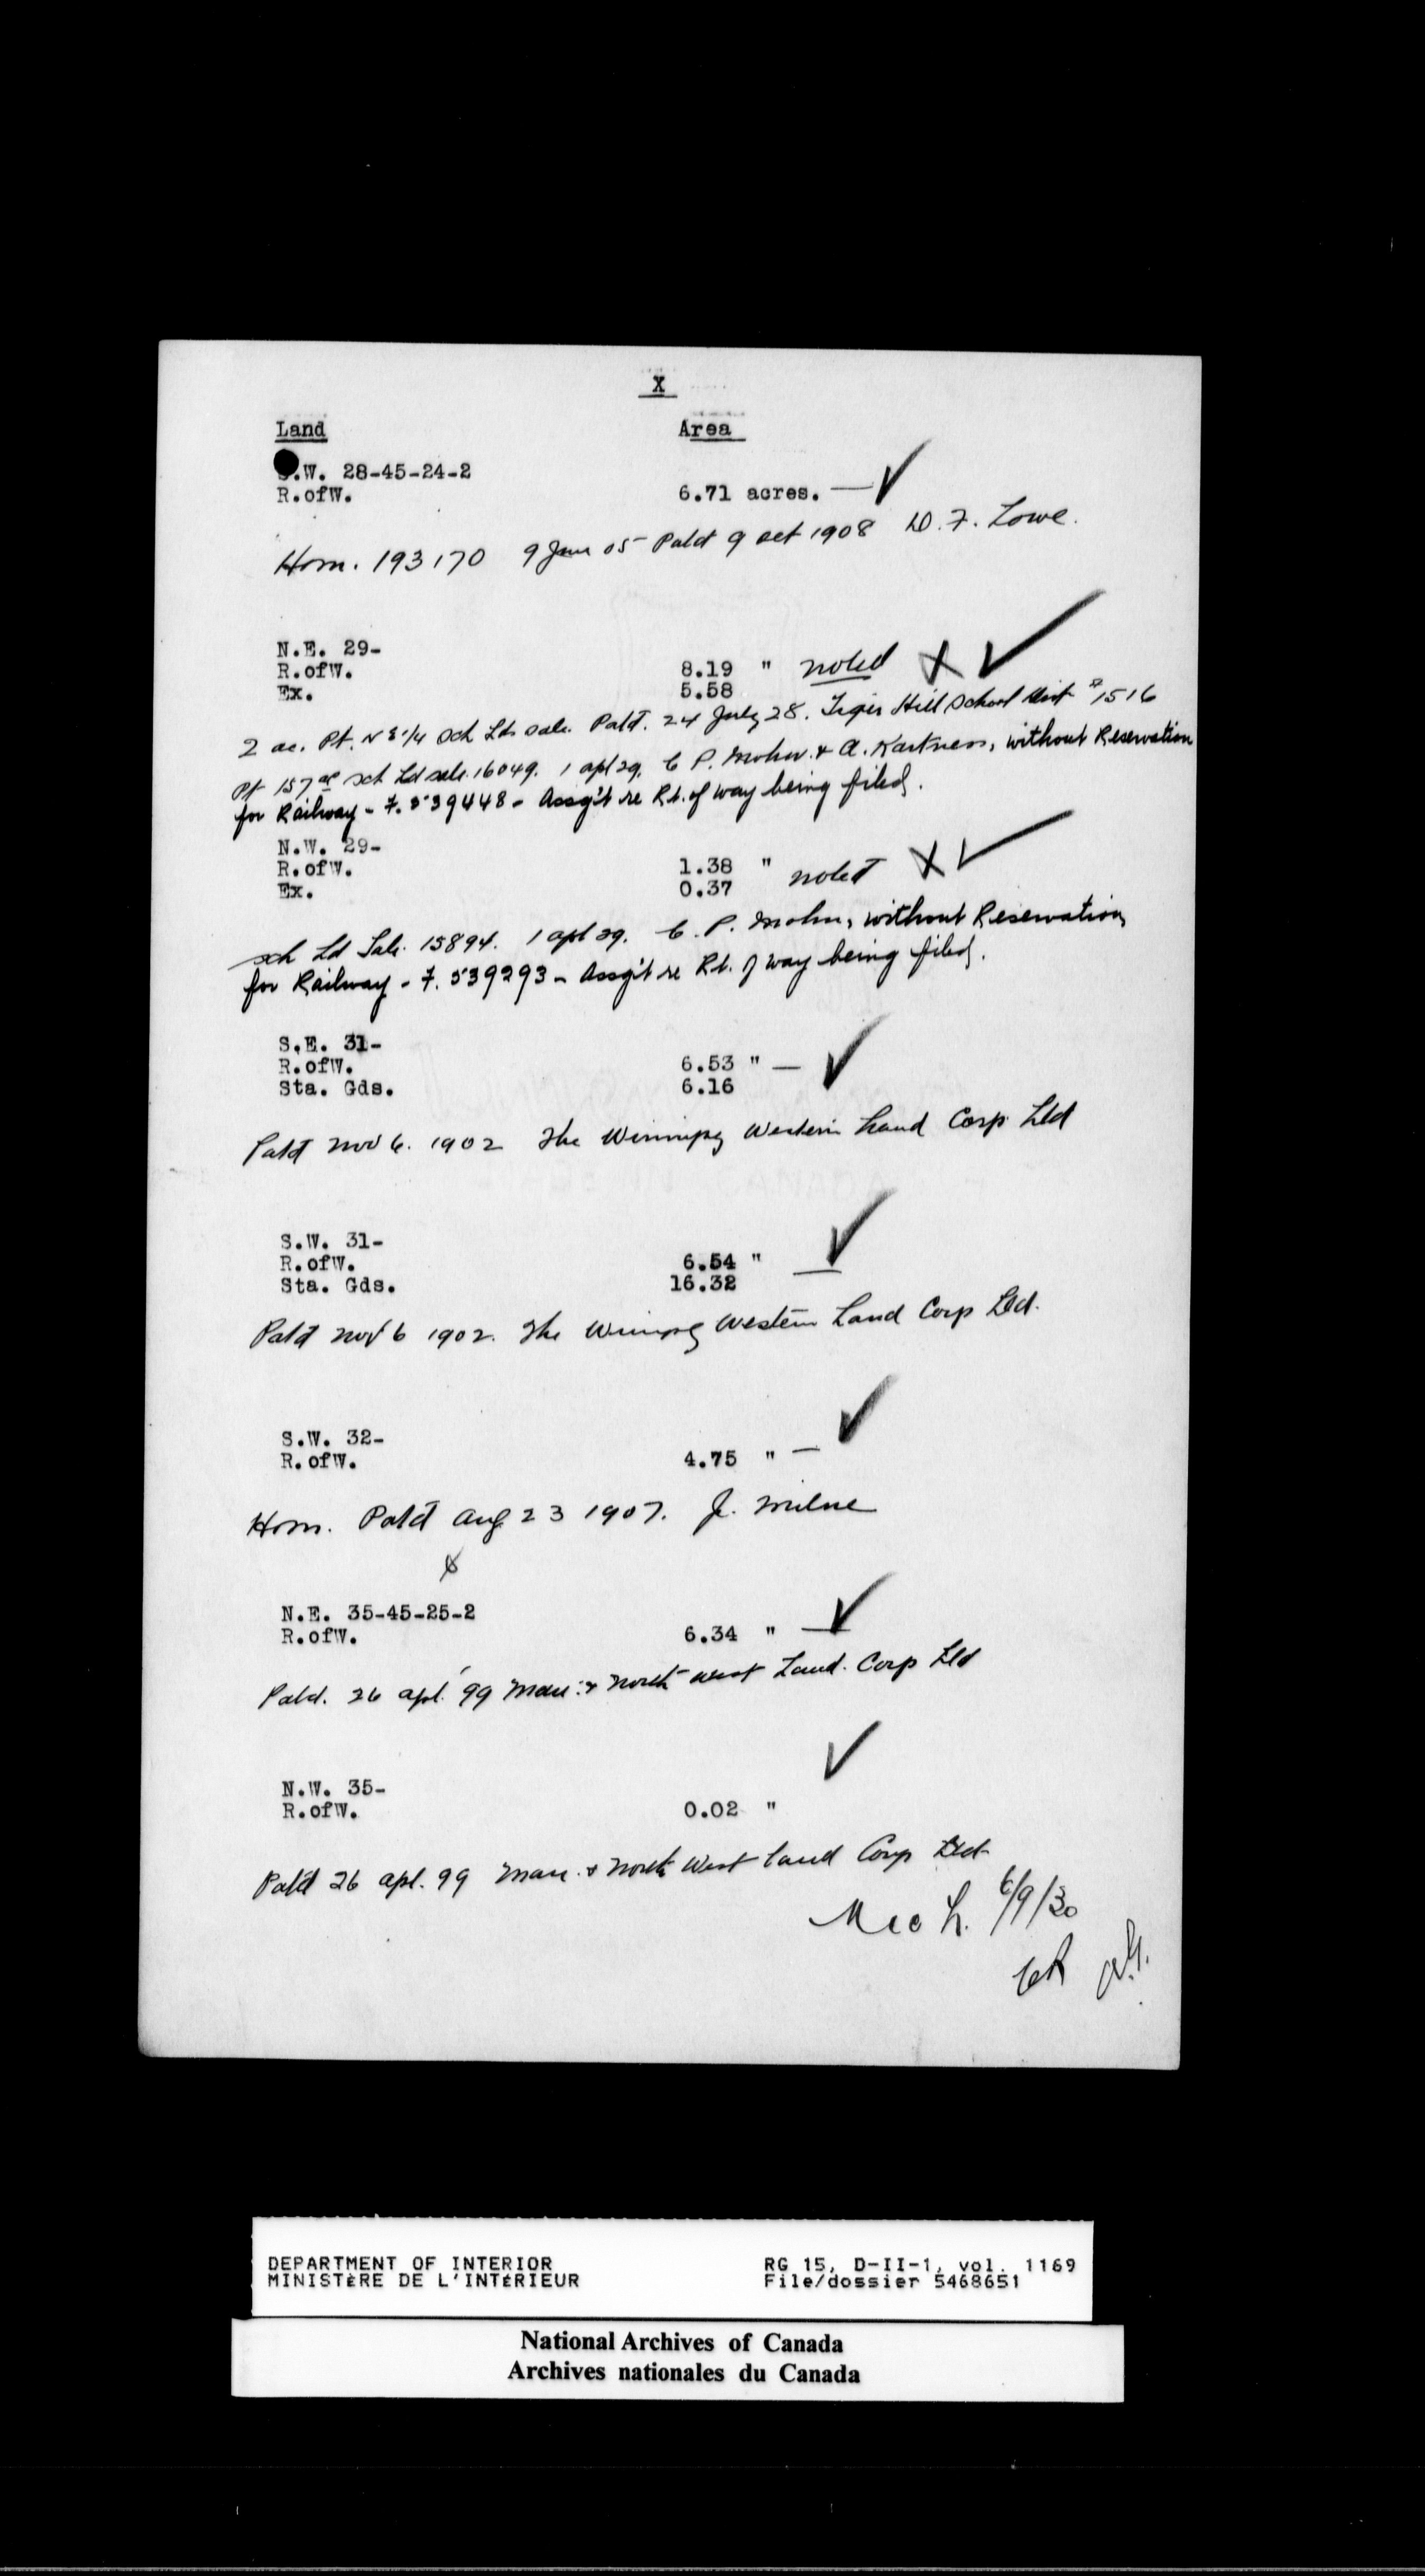 X
Land Area
.W. 28-45-24-2
R.ofW. 6.71 acres. —✓
Hom. 193170 9 Jun 05 Patd 9 Oct 1908 D. F. Lowe.
N.E. 29-
R.ofW. 8.19 " noted X ✓
Ex. 5.58
2 ac. Pt. N E 1/4 Sch Ld Sale. Patd. 24 July 28. Tiger Hill School Dist #1516
Pt 157 ac Sch Ld sale 16049. 1 apl 29. C P. Mohn & A. Kartness, without Reservation
for Railway - F. 539448 - Assg't re Rt. of way being filed.
N.W. 29-
R.ofW. 1.38 " noted X ✓
Ex. 0.37
Sch Ld Sale 15894. 1 apl 29. C. P. Mohn, without Reservation
for Railway - F. 539293 - Assg't re Rt. of way being filed.
S.E. 31-
R.ofW. 6.53 " — ✓
Sta. Gds. 6.16
Patd Nov 6. 1902 The Winnipeg Western Land Corp Ltd
S.W. 31-
R.ofW. 6.54 " — ✓
Sta. Gds. 16.32
Patd Nov 6 1902. The Winnipeg Western Land Corp Ltd.
S.W. 32-
R.ofW. 4.75 " — ✓
Hom. Patd Aug 23 1907. J. Milne
N.E. 35-45-25-2
R.ofW. 6.34 " — ✓
Patd. 26 apl. '99 Man. & North West Land. Corp Ltd
N.W. 35-
R.ofW. 0.02 " ✓
Patd 26 apl. 99 Man. & North West Land Corp Ltd
6/9/30
DEPARTMENT OF INTERIOR RG 15, D-II-1, vol. 1169
MINISTÈRE DE L'INTÉRIEUR File/dossier 5468651
National Archives of Canada
Archives nationales du Canada